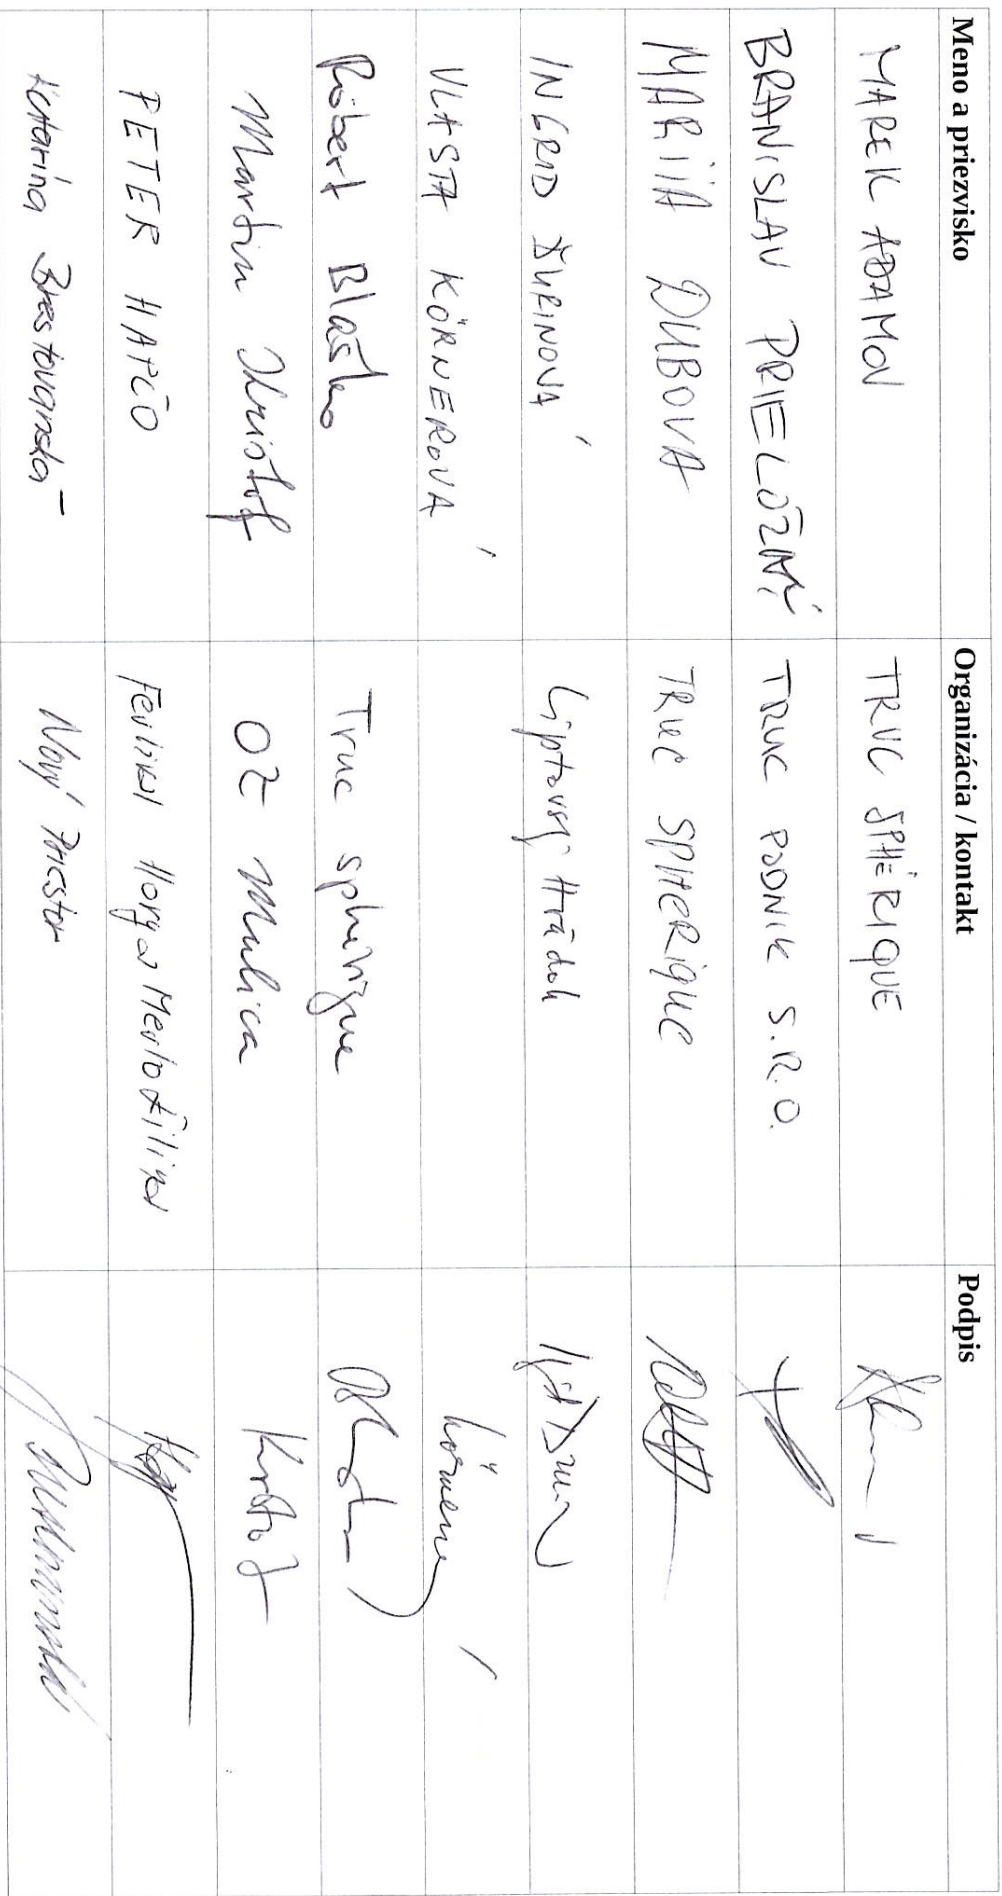 Meno a priezvisko Organizácia / kontakt Podpis
MAREK ADAMOV TRUC SPHÉRIQUE
BRANISLAV PRIELOŽNÝ TRUC PODNIK S.R.O.
MARIIA DUBOVA TRUC SPHERIQUE
INGRID ĎURINOVÁ Liptovský Hrádok
VLASTA KÖRNEROVÁ
Róbert Blaško Truc spherique
Martin Krištof OZ Mulica
PETER HAPČO Festival Hory a Mesto Žilina
Katarína Brestovanská Nový Priestor